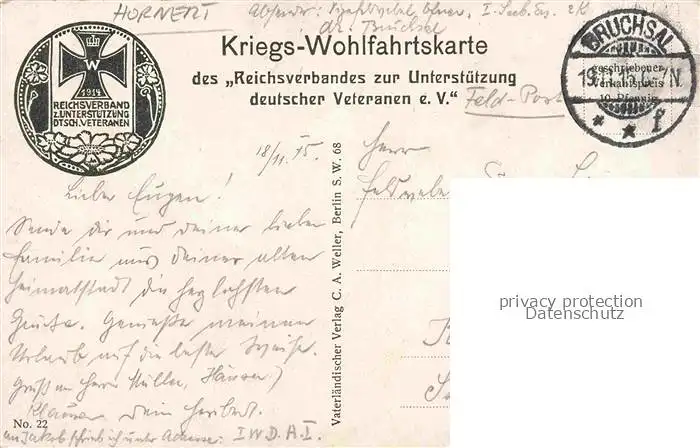 HORNERT
Absender:
I.
Bruchsal
Kriegs-Wohlfahrtskarte
des „Reichsverbandes zur Unterstützung
deutscher Veteranen e. V."
Feld-Post
W
1914
REICHSVERBAND
z. UNTERSTÜTZUNG
DTSCH. VETERANEN
BRUCHSAL
geschriebener
Verkaufspreis
10 Pfennig
* * f
18/11. 15.
Lieber Eugen!
Sende dir und deiner lieben
Familie aus deiner alten
Heimatstadt die herzlichsten
Grüße. Genieße meinen
Urlaub auf die beste Weise.
Gruß an Herrn Müller,
dein Herbert.
an Jakob schrieb ich unter Adresse: I W D A I
No. 22
Vaterländischer Verlag C. A. Weller, Berlin S. W. 68
Herrn
privacy protection
Datenschutz